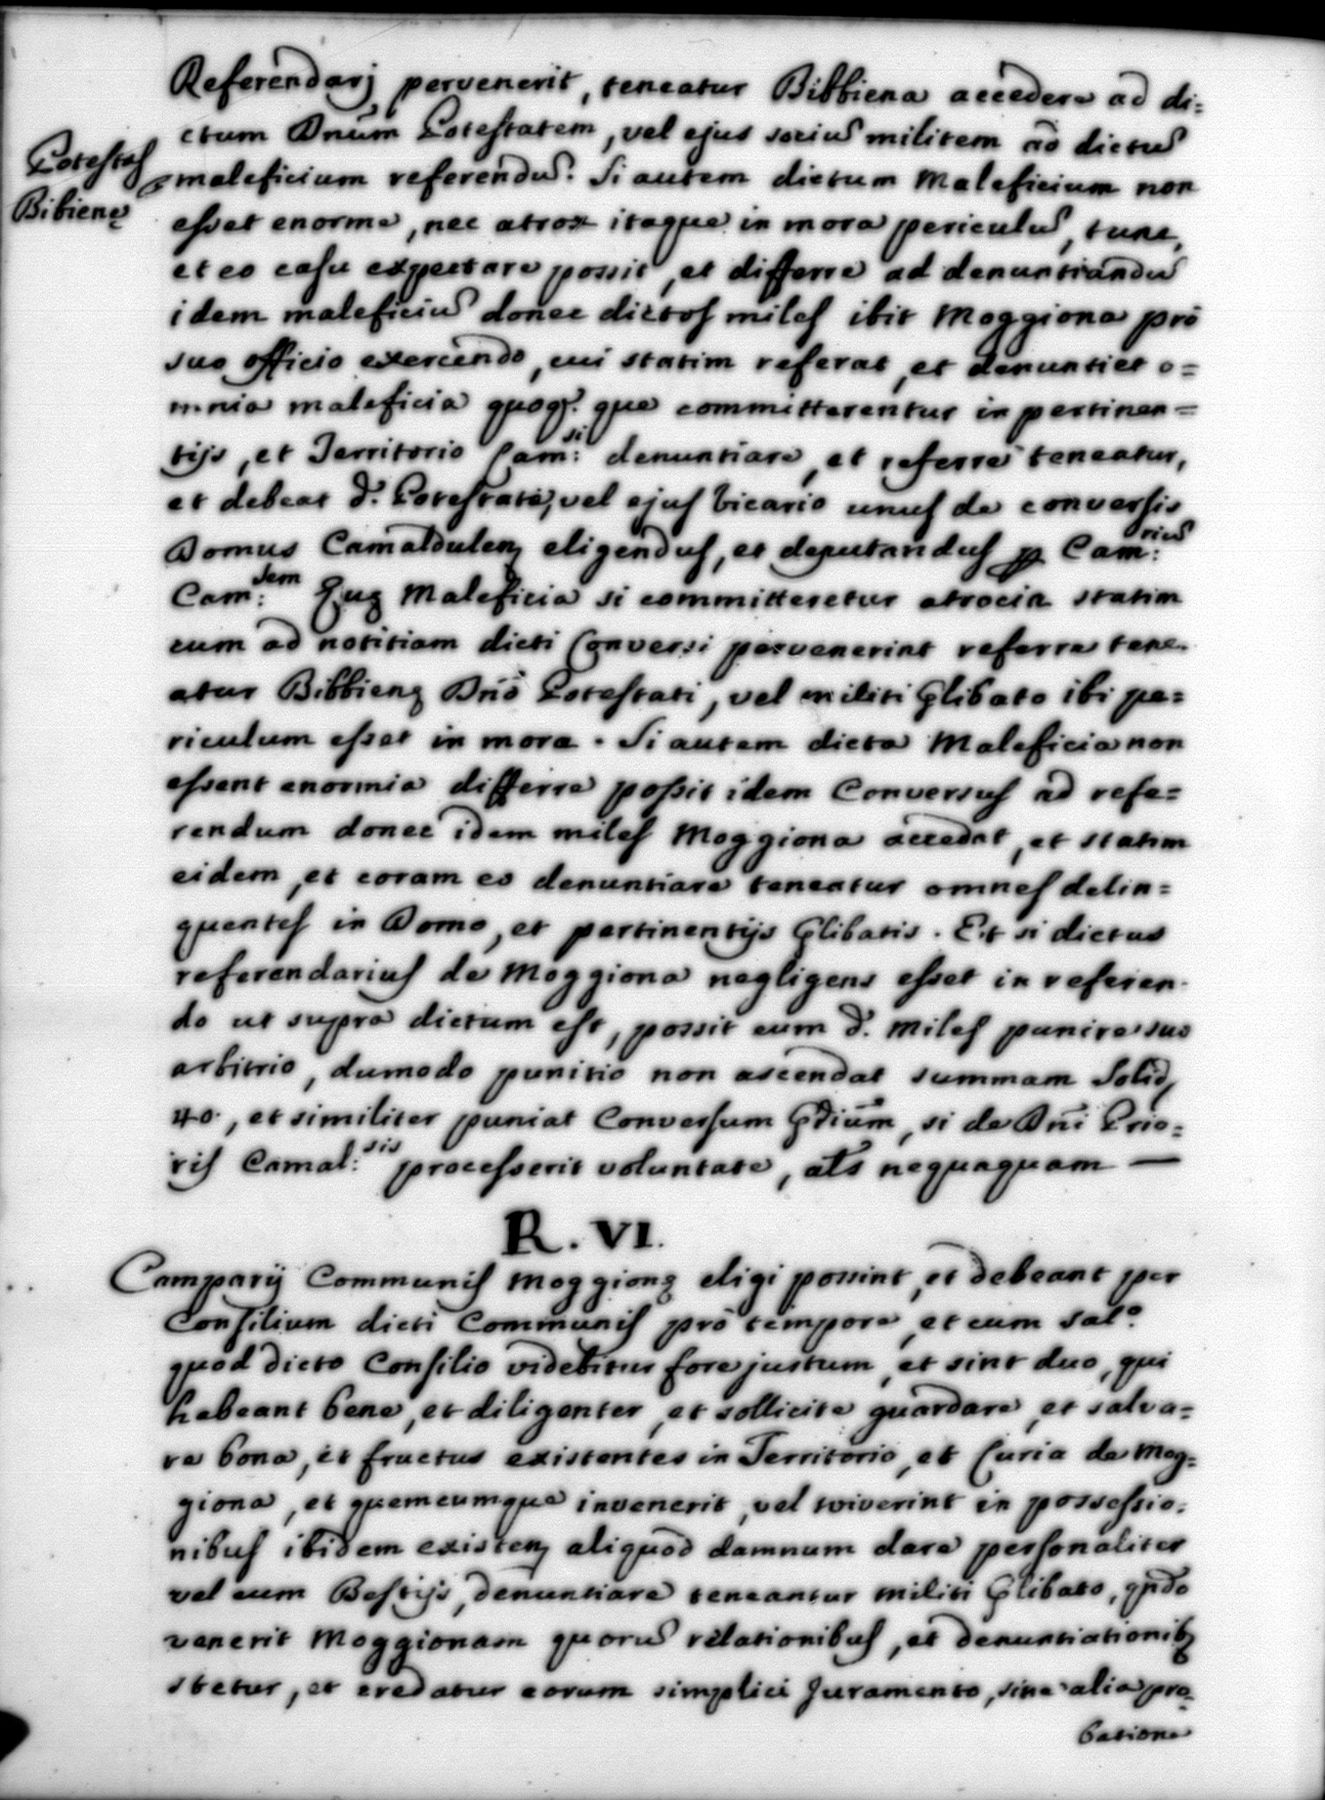 Referendarj pervenerit, teneatur Bibbiena accedere ad di=
ctum Dnūm Potestatem, vel ejus sociū militem ad dictū
Potestas
Bibienę
maleficium referendū. Si autem dictum Maleficium non
esset enorme, nec atrox itaque in mora periculū, tunc,
et eo casu expectare possit, et differre ad denuntiandū
idem maleficiū donec dictos miles ibit Moggiona pro
suo officio exercendo, cui statim referat, et denuntiet o=
mnia maleficia quoq. que committerentur in pertinen=
tijs, et Territorio Cam:si denuntiare, et referre teneatur,
et debeat d. Potestati, vel ejus Vicario unus de conversis
Domus Camaldulen; eligendus, et deputandus p Cam:rius
Cam:dem Quę Maleficia si committeretur atrocia statim
cum ad notitiam dicti Conversi pervenerint referre tene-
atur Bibbienę Dnō Potestati, vel militi Glibato ibi pe=
riculum esset in mora. Si autem dicta Maleficia non
essent enormia differre possit idem Conversus ad refe=
rendum donec idem miles Moggiona accedat, et statim
eidem, et coram eo denuntiare teneatur omnes delin=
quentes in Domo, et pertinentijs Glibatis. Et si dictus
referendarius de Moggiona negligens esset in referen-
do ut supra dictum est, possit eum d. Miles punire suo
arbitrio, dumodo punitio non ascendat summam Solid;
40., et similiter puniat Conversum Gdiūm, si de Dnī Prio=
ris Camal:sis processerit voluntate, als nequaquam —
R. VI.
Camparij Communis Moggionę eligi possint, et debeant per
Consilium dicti Communis pro tempore, et cum Sal.o
quod dicto Consilio videbitur fore justum, et sint duo, qui
habeant bene, et diligenter, et sollicite guardare, et salva=
re bona, et fructus existentes in Territorio, et Curia de Mog=
giona, et quemcumque invenerit, vel inviverint in possessio=
nibus ibidem existen; aliquod damnum dare personaliter
vel cum Bestijs, denuntiare teneantur militi Glibato, qndo
venerit Moggionam quorū relationibus, et denuntiationib;
stetur, et credatur eorum simplici Juramento, sine alia pro=
batione